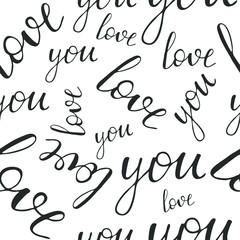 love you you you
you love love
love you
love you
love you
love you
love love
you you you